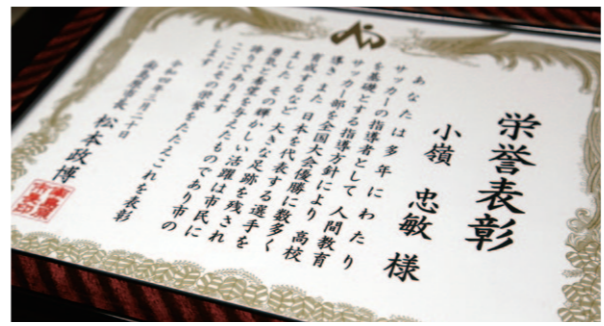 栄誉表彰
小嶺 忠敏 様
あなたは多年にわたり
サッカーの指導者として 人間教育
を基礎とする指導方針により 高校
サッカー部を全国大会優勝に数多く
導き また 日本を代表する選手を
育成するなど 大きな足跡を残され
ました その輝かしい活躍は市民に
勇気と希望を与えたものであり市の
誇りであります
ここにその栄誉をたたえこれを表彰
します
令和四年三月二十日
南島原市長 松本政博